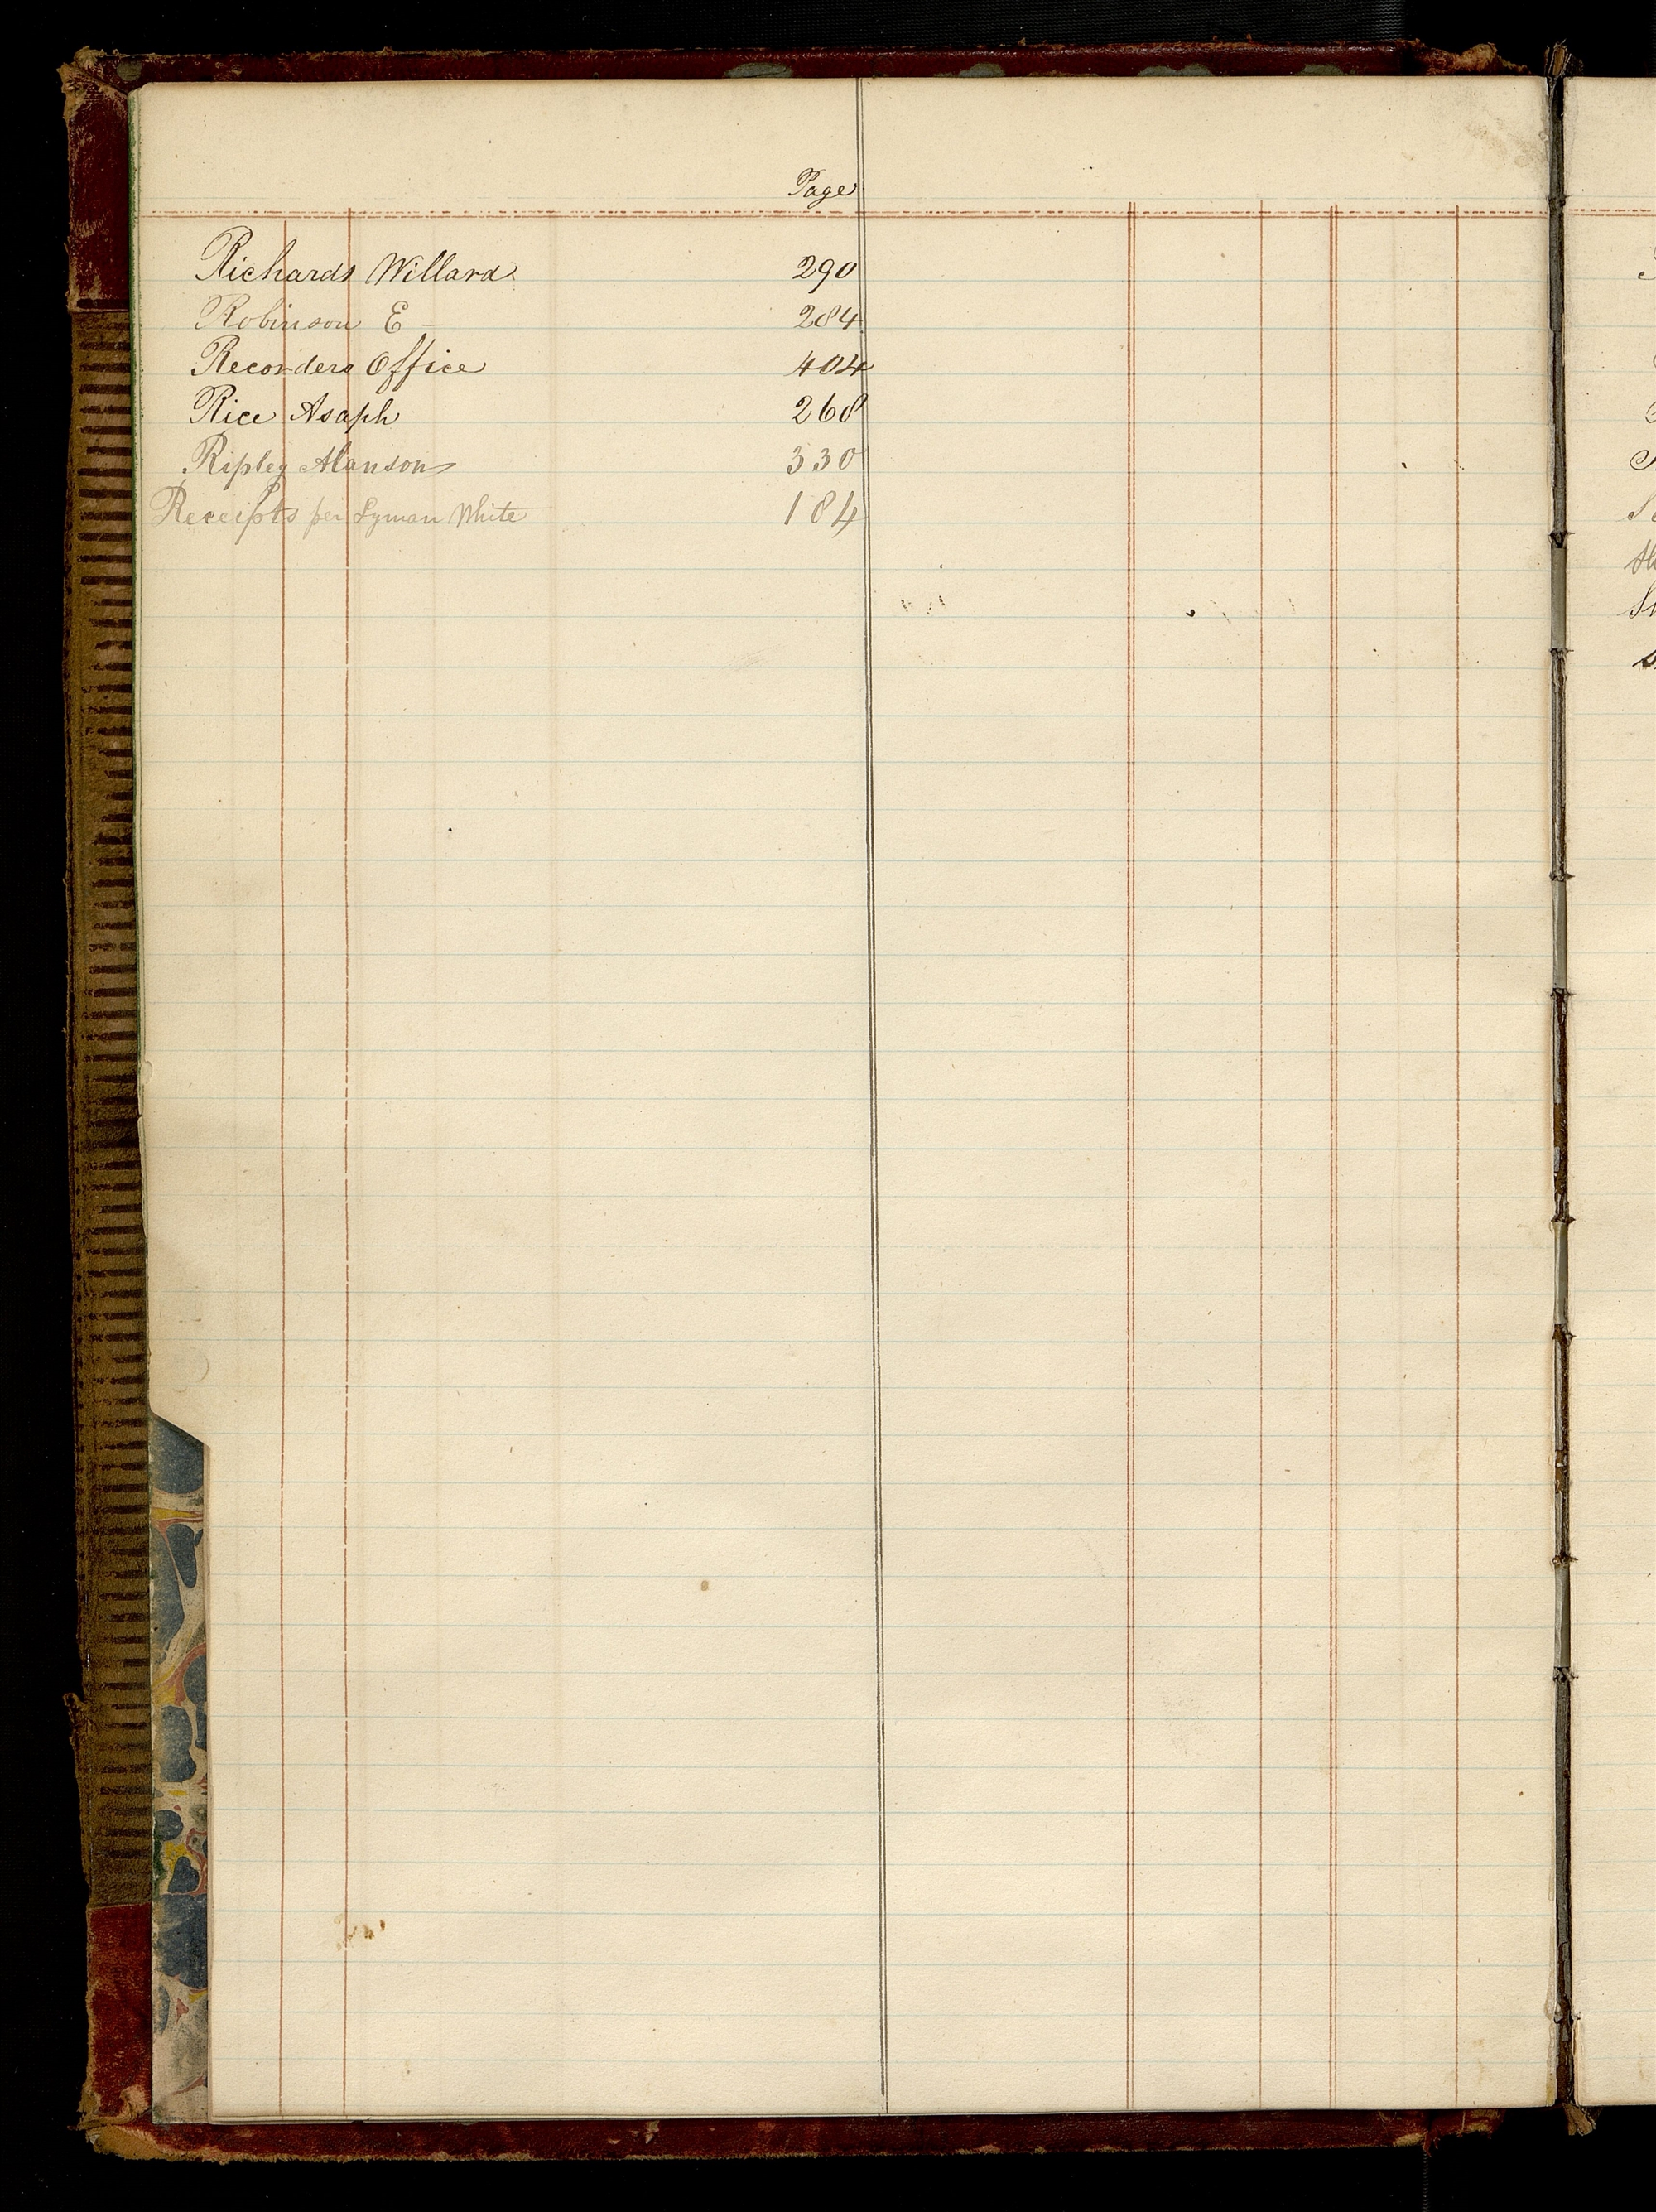 Page
Richards Willard 290
Robinson E - 284
Recorders Office 404
Rice Asaph 268
Ripley Alanson 330
Receipts per Lyman White 184